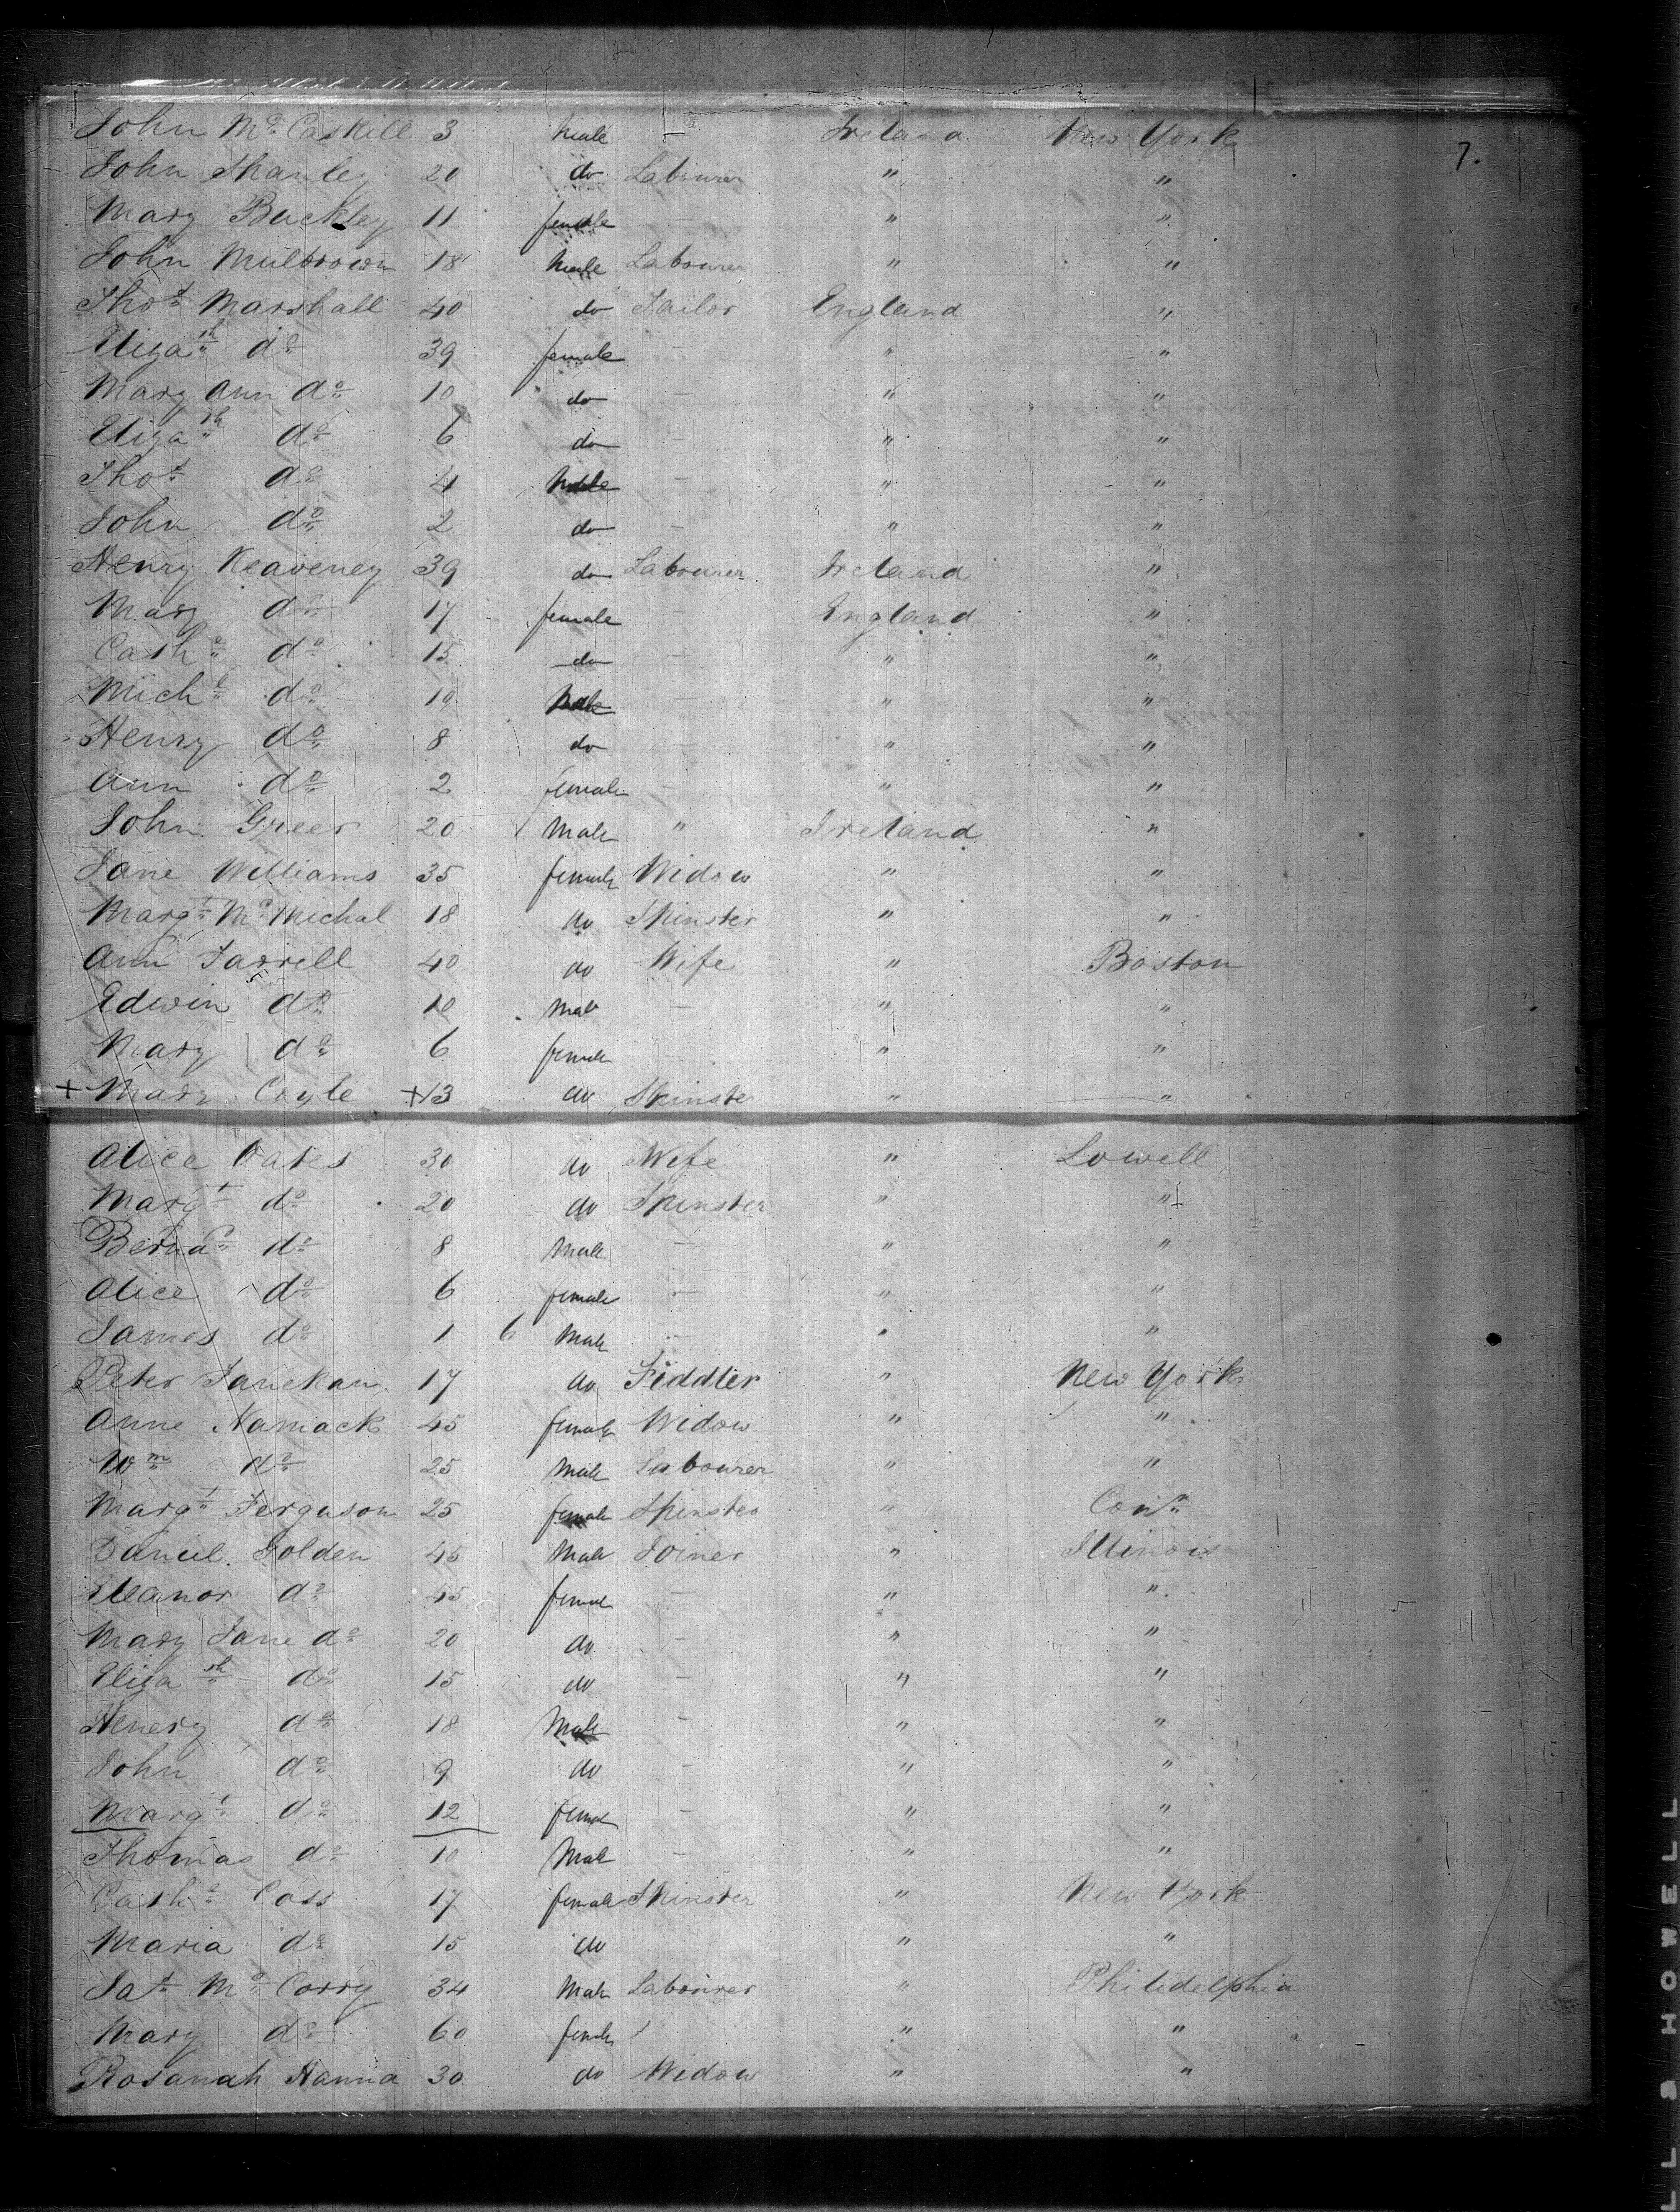 7.
John Mc Caskill 3 male - Ireland New York
John Shanley 20 do Labourer " "
Mary Buckley 11 female - " "
John Mulbrown 18 male Labourer " "
Thos Marshall 40 do Tailor England "
Elizath do 39 female - " "
Mary Ann do 10 do - " "
Elizath do 6 do - " "
Thos do 4 Male - " "
John do 2 do - " "
Henry Keaveney 39 do Labourer Ireland "
Mary do 17 female - England "
Cathe do 15 do - " "
Michl do 10 Male - " "
Henry do 8 do " "
Ann do 2 female - " "
John Greer 20 Male " Ireland "
Jane Williams 35 female Widow " "
Margt Mc Michal 18 do Spinster " "
Ann Farrell 40 do Wife " Boston
Edwin do 10 Male - " "
Mary do 6 female " "
+ Mary Coyle +13 do Spinster " "
Alice Oates 30 do Wife " Lowell
Margt do 20 do Spinster " "
Bernad do 8 Male - " "
Alice do 6 female - " "
James do 1 6 Male - " "
Peter Fanekan 17 do Fiddler " New York
Anne Namack 45 female Widow " "
Wm do 25 Male Labourer " "
Margt Ferguson 25 female Spinster " Conn
Daniel Golden 45 Male Joiner " Illinois
Eleanor do 45 female - " "
Mary Jane do 20 do - " "
Elizath do 15 do - " "
Henery do 18 Male - " "
John do 9 do - " "
Margt do 12 female - " "
Thomas do 10 Male - " "
Cathe Coss 17 female Spinster " New York
Maria do 15 do " "
Jas Mc Corry 34 Male Labourer " Philidelphia
Mary do 60 female " "
Rosanah Hanna 30 do Widow " "
L & HOWELL